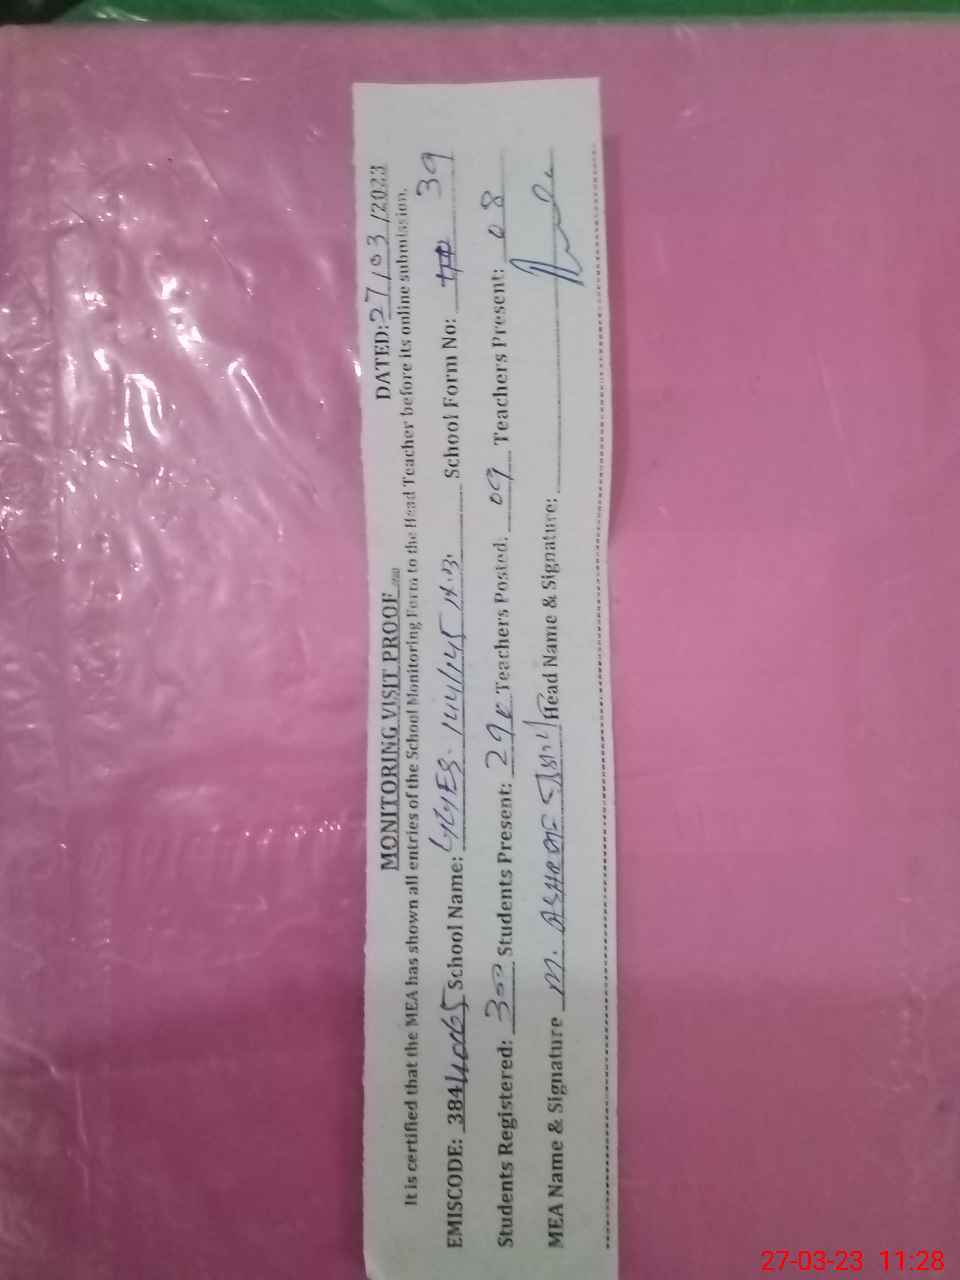 MONITORING VISIT PROOF DATED: 27/03/2023
It is certified that the MEA has shown all entries of the School Monitoring Form to the Head Teacher before its online submission.
EMISCODE: 38440065 School Name: GGES. 144/145 N.B. School Form No: 39
Students Registered: 300 Students Present: 29 Teachers Posted: 09 Teachers Present: 08
MEA Name & Signature M. ASHRAF Head Name & Signature:
27-03-23 11:28